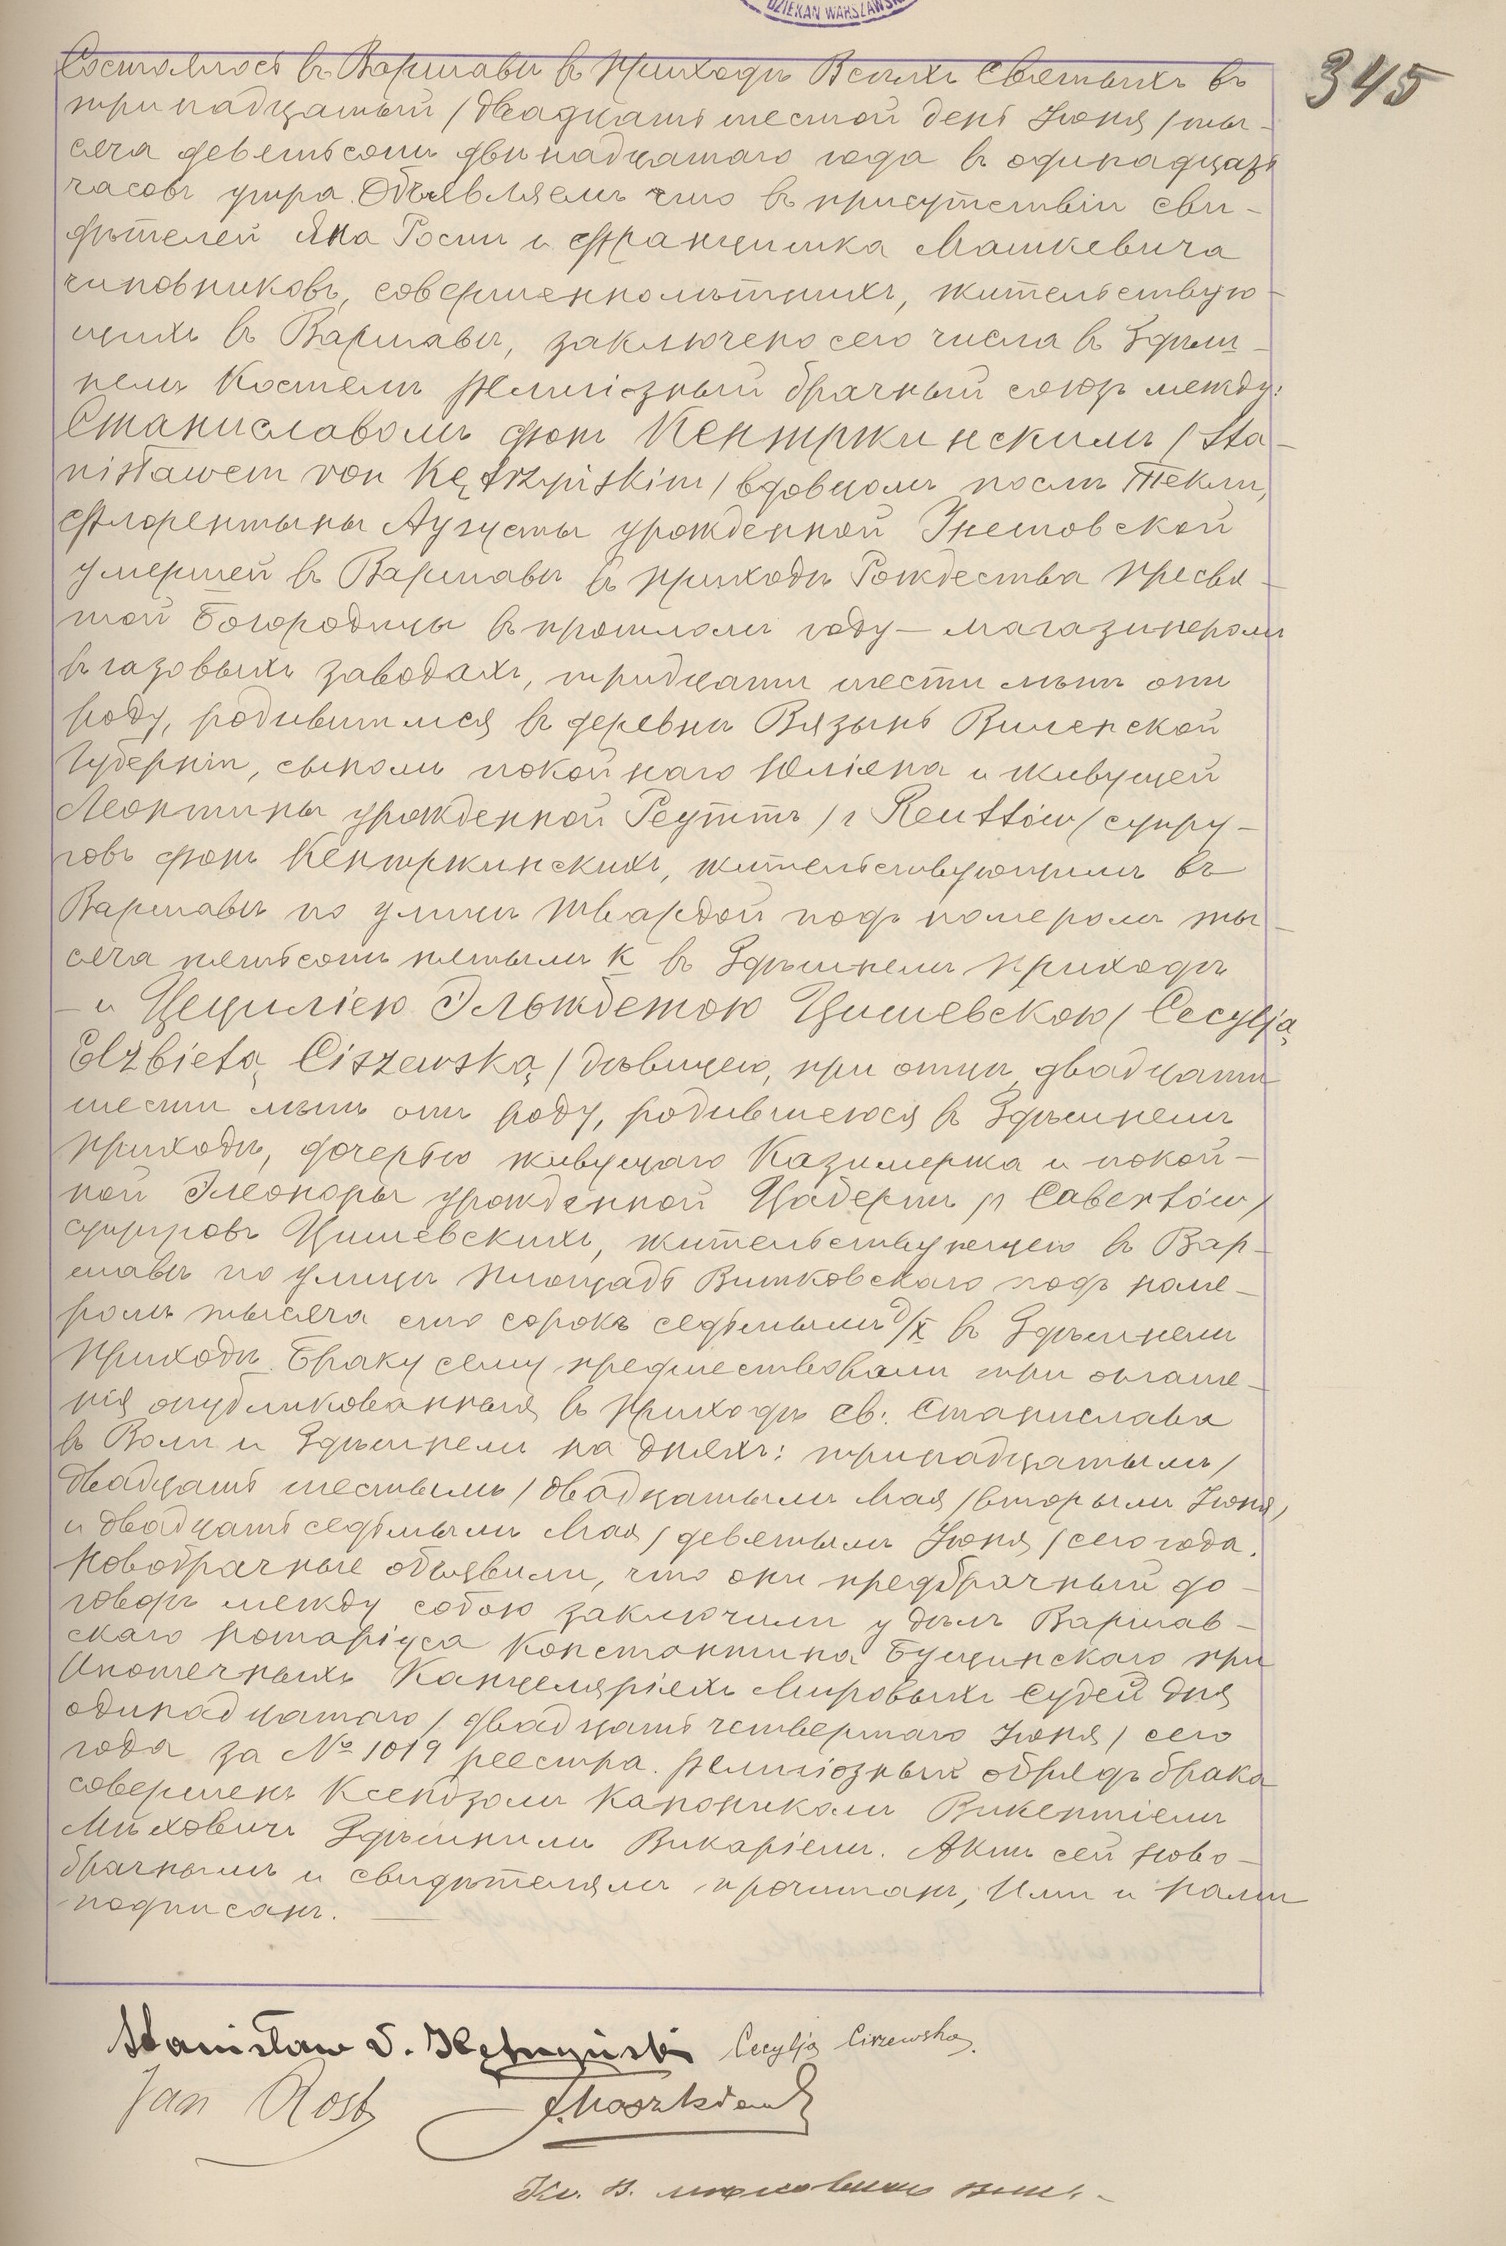 DZIEKAN WARSZAWSKI
345
Состоялось въ Варшавѣ въ Приходѣ Всѣхъ Святыхъ въ
тринадцатый /двадцать шестой день Іюня/ ты-
сяча девятьсотъ двѣнадцатаго года въ одинадцать
часовъ утра. Объявляемъ что въ присутствіи сви-
дѣтелей Яна и Францишка Машкевича
чиновниковъ, совершеннолѣтнихъ, жительствую-
щихъ въ Варшавѣ, заключено сего числа въ Здѣш-
немъ Костелѣ Религіозный брачный союзъ между:
Станиславомъ фонъ Кентржинскимъ /Sta-
nisławem von Kętrzyńskim/ вдовцомъ послѣ Текли,
Флорентыны Аугусты урожденной
умершей въ Варшавѣ въ Приходѣ Рождества Пресвя-
той Богородицы въ прошломъ году — магазинеромъ
въ газовыхъ заводахъ, тридцати шести лѣтъ отъ
роду, родившимся въ деревнѣ Вязынь Виленской
Губерніи, сыномъ покойнаго Юліяна и живущей
Леонтины урожденной Реуттъ /z Reuttów/ супру-
говъ фонъ Кентржинскихъ, жительствующимъ въ
Варшавѣ по улицѣ Твардой подъ номеромъ ты-
сяча пятьсотъ пятымъ К въ Здѣшнемъ Приходѣ
— и Цециліею Эльжбетою Цишевскою /Cecylją
Elżbietą Ciszewską/ дѣвицею, при отцѣ, двадцати
шести лѣтъ отъ роду, родившеюся въ Здѣшнемъ
Приходѣ, дочерью живущаго Казимержа и покой-
ной Элеоноры урожденной Цабертъ /z Cabertów/
супруговъ Цишевскихъ, жительствующею въ Вар-
шавѣ по улицѣ Площадь Витковскаго подъ номе-
ромъ тысяча сто сорокъ седьмымъ д/X въ Здѣшнемъ
Приходѣ. Браку сему предшествовали три оглаше-
нія опубликованныя въ Приходѣ Св. Станислава
въ Воли и Здѣшнемъ на дняхъ: тринадцатымъ/
двадцать шестымъ/ двадцатымъ Мая /вторымъ Іюня/
и двадцать седьмымъ Мая /девятымъ Іюня/ сего года.
Новобрачные объявили, что они предбрачный до-
говоръ между собою заключили у дѣлъ Варшав-
скаго нотаріуса Константина Бущинскаго при
Ипотечныхъ Канцеляріяхъ Мировыхъ Судей дня
одинадцатаго /двадцать четвертаго Іюня/ сего
года за № 1019 реестра. Религіозный обрядъ брака
совершенъ Ксендзомъ Каноникомъ Викентіемъ
Здѣшнимъ Викаріемъ. Актъ сей ново-
брачнымъ и свидѣтелямъ прочитанъ, Ими и Нами
подписанъ.
Stanisław v. Kętrzyński Cecylja Ciszewska.
Jan